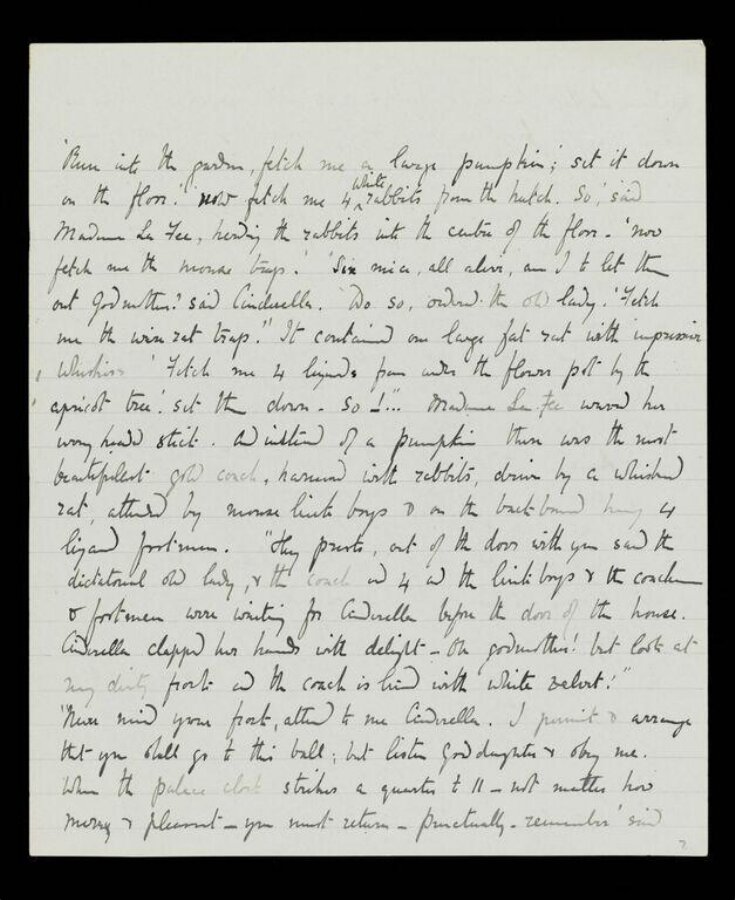 'Run into the garden, fetch me a large pumpkin; set it down
on the floor.' 'now fetch me 4 white rabbits from the hutch. So', said
Madame La Fee, heading the rabbits into the centre of the floor - 'now
fetch me the mouse trap.' 'Six mice, all alive, am I to let them
out Godmother? said Cinderella. 'Do so, ordered the old lady. 'Fetch
me the wire rat trap." It contained one large fat rat with impressive
whiskers 'Fetch me 4 lizards from under the flower pot by the
apricot tree'. set them down - So!"... Madame La Fee waved her
ivory headed stick. And instead of a pumpkin there was the most
beautifulest gold coach, harnessed with rabbits, driven by a whiskered
rat, attended by mouse link boys & on the back board hung 4
lizard footmen. "Hey presto, out of the door with you said the
dictatorial old lady, & the coach and 4 and the link boys & the coachman
& footmen were waiting for Cinderella before the door of the house.
Cinderella clapped her hands with delight - Oh godmother! but look at
my dirty frock and the coach is lined with white velvet!"
'Never mind your frock, attend to me Cinderella. I permit & arrange
that you shall go to this ball; but listen Goddaughter & obey me.
When the palace clock strikes a quarter to 11 - not matter how
merry & pleasant - you must return - punctually - remember' said
7